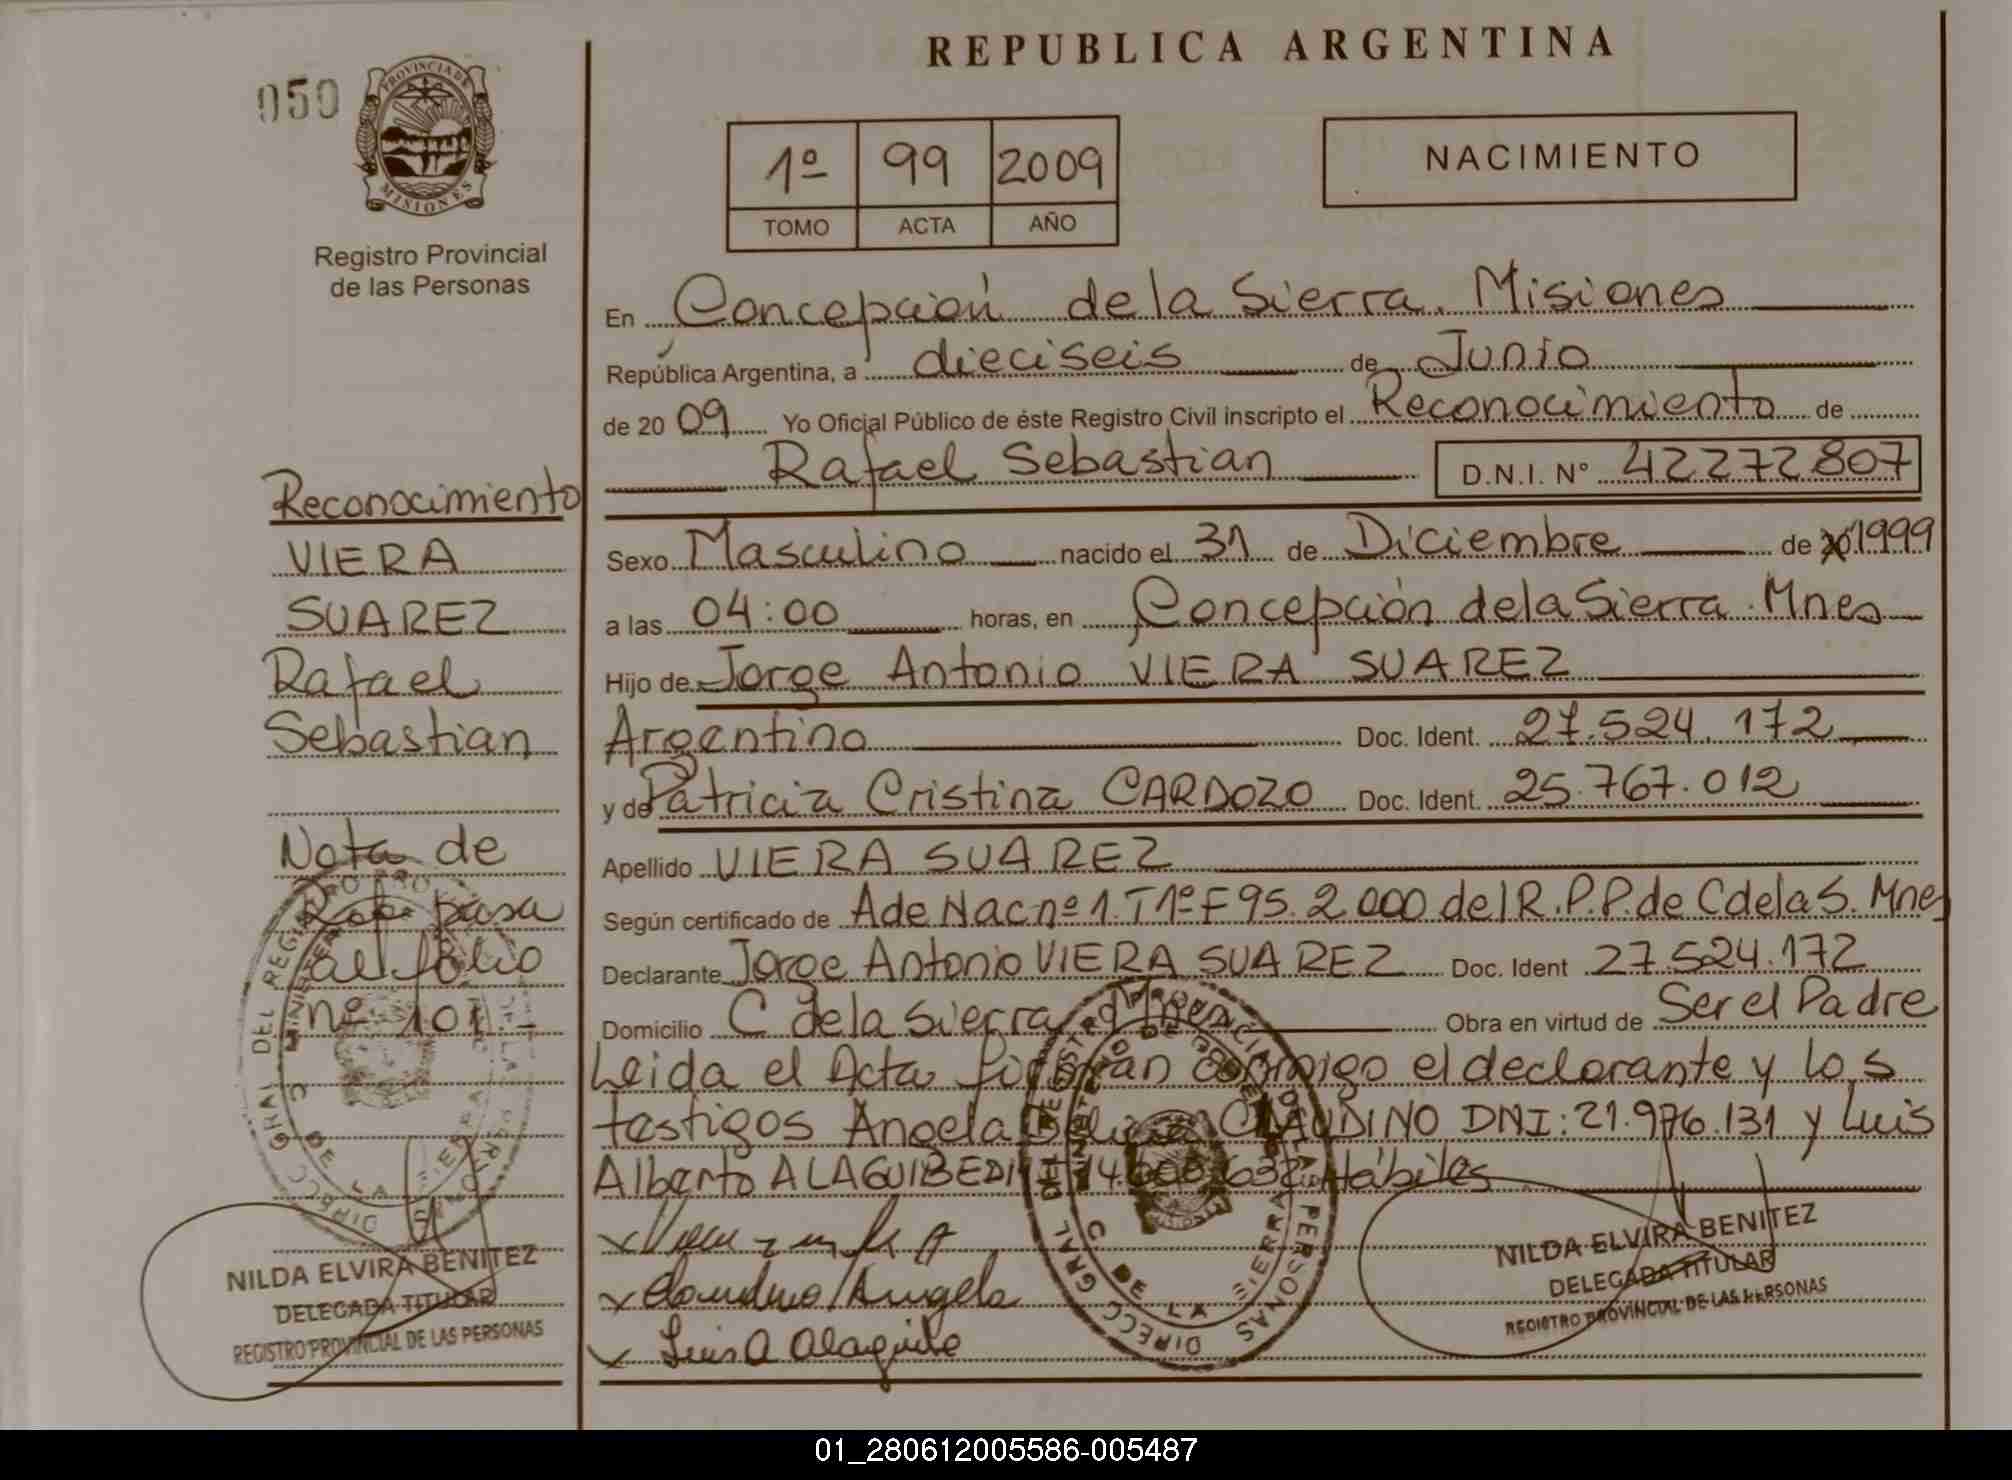 REPUBLICA ARGENTINA
050
PROVINCIA DE
MISIONES
Registro Provincial
de las Personas
1º 99 2009
TOMO ACTA AÑO
NACIMIENTO
En Concepción de la Sierra. Misiones
República Argentina, a dieciseis de Junio
de 2009 Yo Oficial Público de éste Registro Civil inscripto el Reconocimiento de
Rafael Sebastian D.N.I. Nº 42272807
Sexo Masculino nacido el 31 de Diciembre de 20 1999
a las 04:00 horas, en Concepción de la Sierra. Mnes
Hijo de Jorge Antonio VIERA SUAREZ
Argentino Doc. Ident. 27.524.172
y de Patricia Cristina CARDOZO Doc. Ident. 25.767.012
Apellido VIERA SUAREZ
Según certificado de A de Nac nº 1. T 1º F 95. 2.000 del R.P.P. de C de la S. Mnes
Declarante Jorge Antonio VIERA SUAREZ Doc. Ident 27.524.172
Domicilio C de la Sierra Mnes Obra en virtud de Ser el Padre
Leida el Acta firman conmigo el declarante y los
testigos Angela CLAUDINO DNI: 21.976.131 y Luis
Alberto ALAGUIBE DNI 14. 632 Hábiles
Claudino Angela
Luis A Alaguibe
NILDA ELVIRA BENITEZ
DELEGADA TITULAR
REGISTRO PROVINCIAL DE LAS PERSONAS
Reconocimiento
VIERA
SUAREZ
Rafael
Sebastian
Nota de
Ref. pasa
al folio
nº 101.-
NILDA ELVIRA BENITEZ
DELEGADA TITULAR
REGISTRO PROVINCIAL DE LAS PERSONAS
01_280612005586-005487